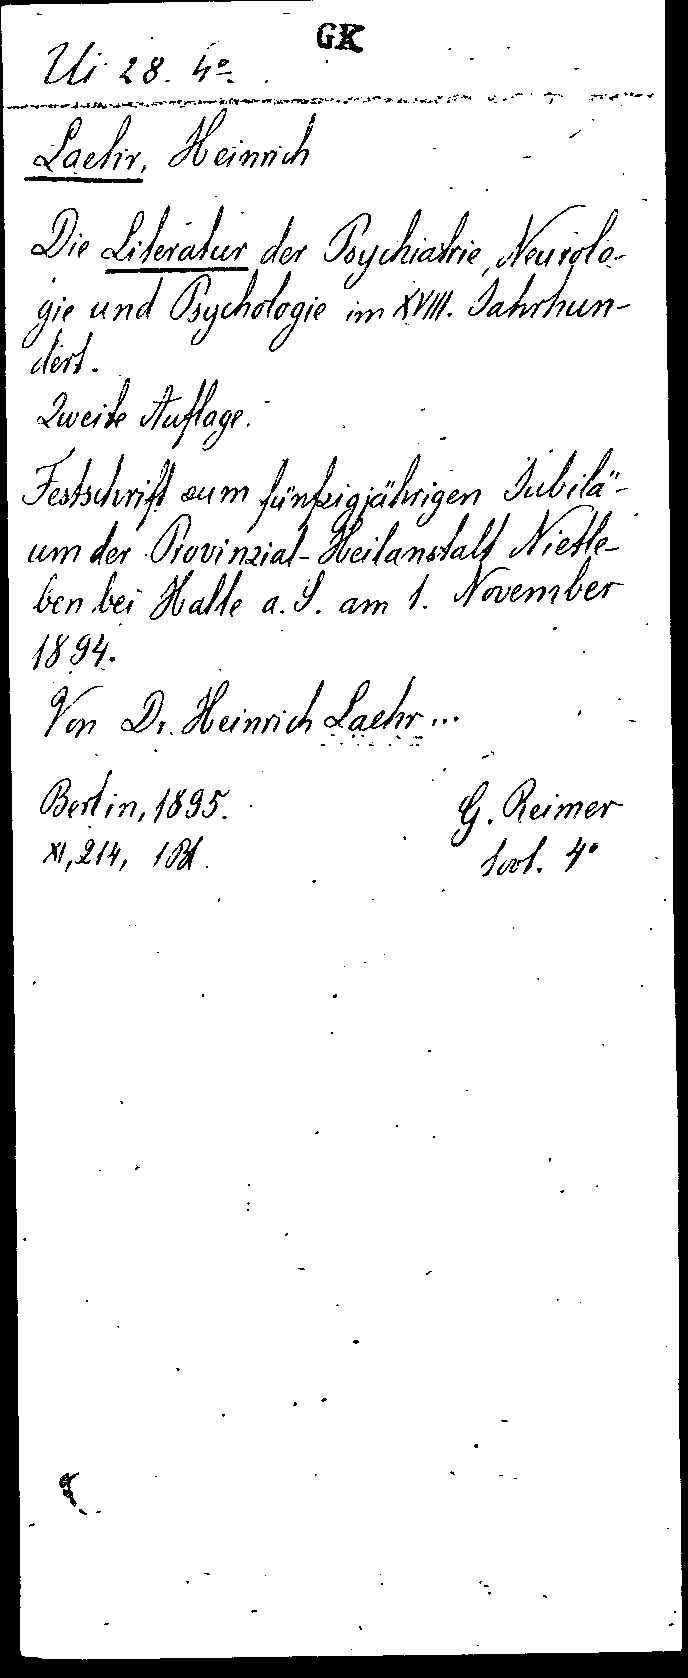 GK
Ui 28. 4º.
Laehr, Heinrich
Die Literatur der Psychiatrie, Neurolo-
gie und Psychologie im XVIII. Jahrhun-
dert.
Zweite Auflage.
Festschrift zum fünfzigjährigen Jubilä-
um der Provinzial-Heilanstalt Nietle-
ben bei Halle a. S. am 1. November
1894.
Von Dr. Heinrich Laehr...
Berlin, 1895. G. Reimer
XI, 214, 1 Bl. 1 vol. 4º